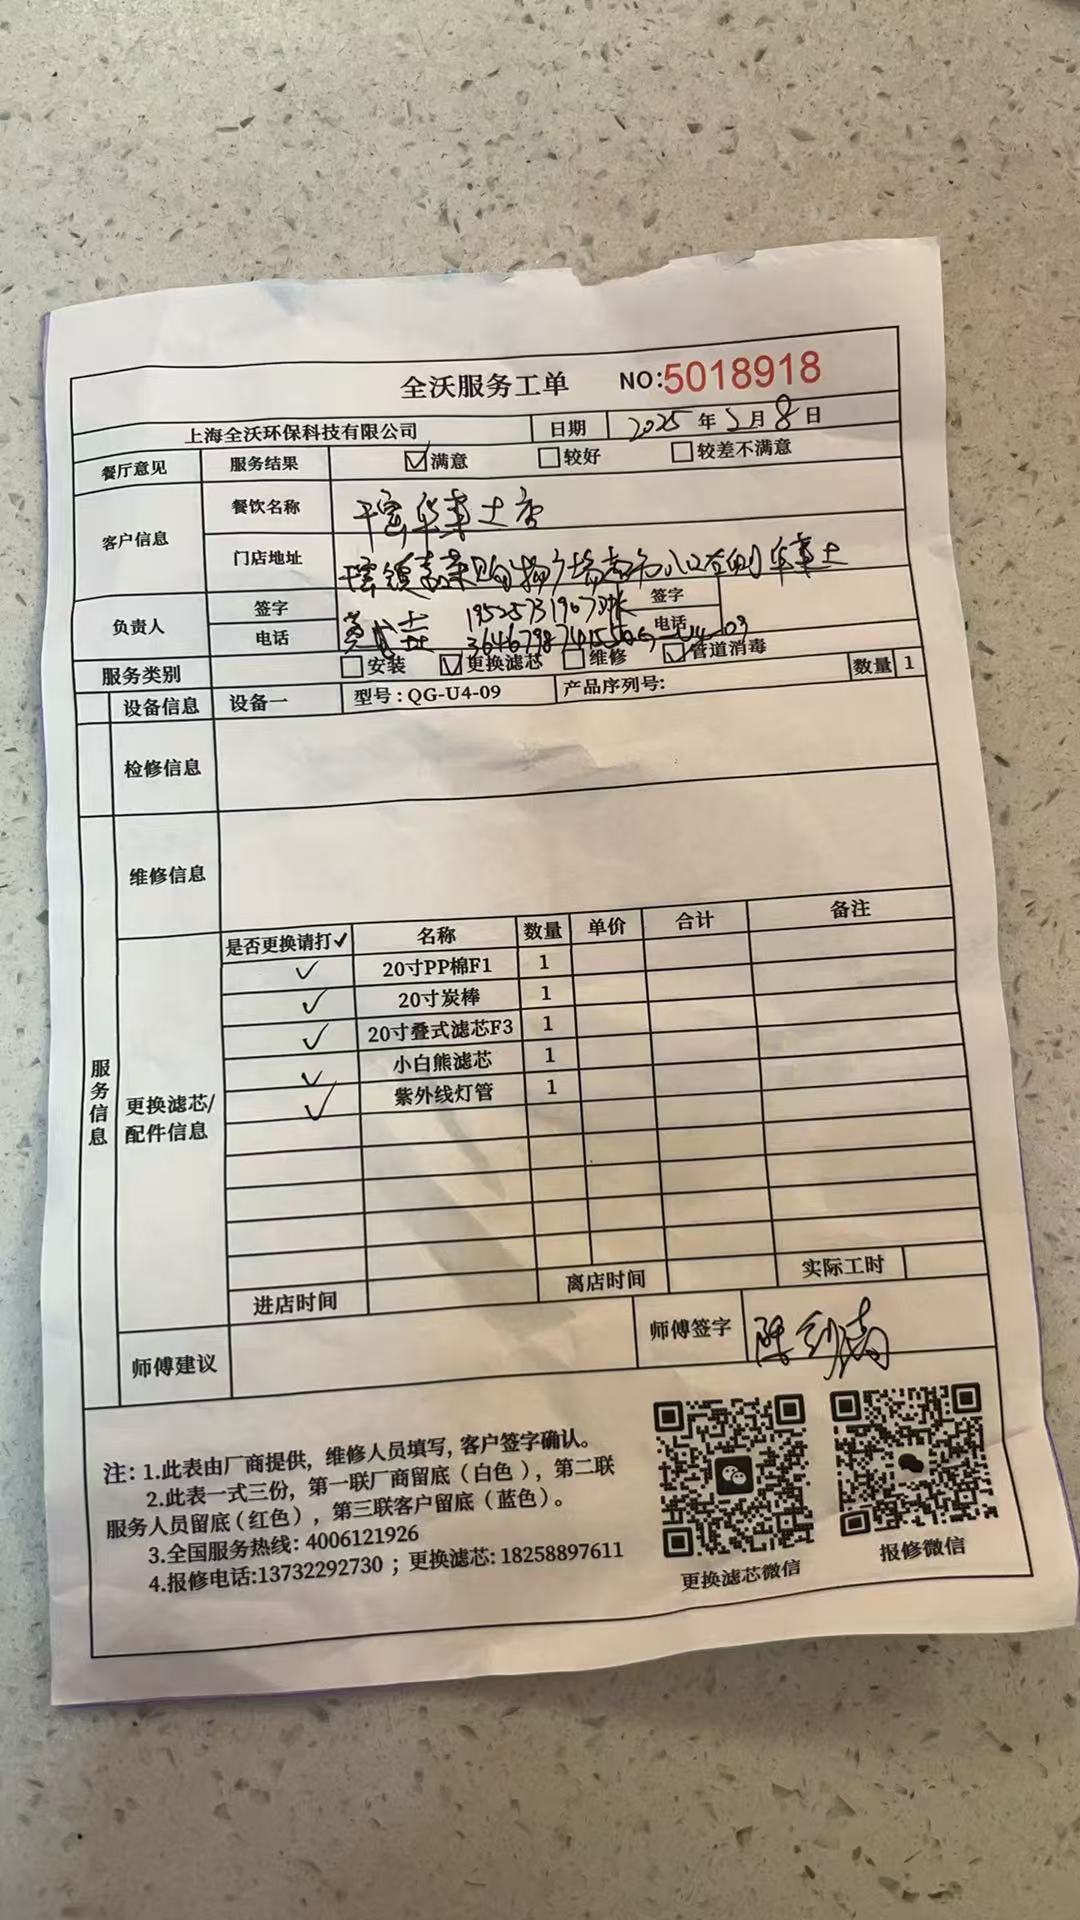 全沃服务工单 NO:5018918
上海全沃环保科技有限公司 日期 2025 年 月 8 日
餐厅意见 服务结果 ☑满意 □较好 □较差不满意
客户信息 餐饮名称 华莱士店
门店地址 购物广场 入口左侧华莱士
负责人 签字 19525731907 签字
电话 电话
服务类别 □安装 ☑更换滤芯 □维修 ☑管道消毒
设备信息 设备一 型号:QG-U4-09 产品序列号: 数量 1
检修信息
维修信息
服务信息
更换滤芯/
配件信息
是否更换请打✓ 名称 数量 单价 合计 备注
✓ 20寸PP棉F1 1
✓ 20寸炭棒 1
✓ 20寸叠式滤芯F3 1
✓ 小白熊滤芯 1
✓ 紫外线灯管 1
进店时间 离店时间 实际工时
师傅建议 师傅签字
注: 1.此表由厂商提供，维修人员填写，客户签字确认。
2.此表一式三份，第一联厂商留底（白色），第二联
服务人员留底（红色），第三联客户留底（蓝色）。
3.全国服务热线: 4006121926
4.报修电话:13732292730 ；更换滤芯: 18258897611
更换滤芯微信 报修微信